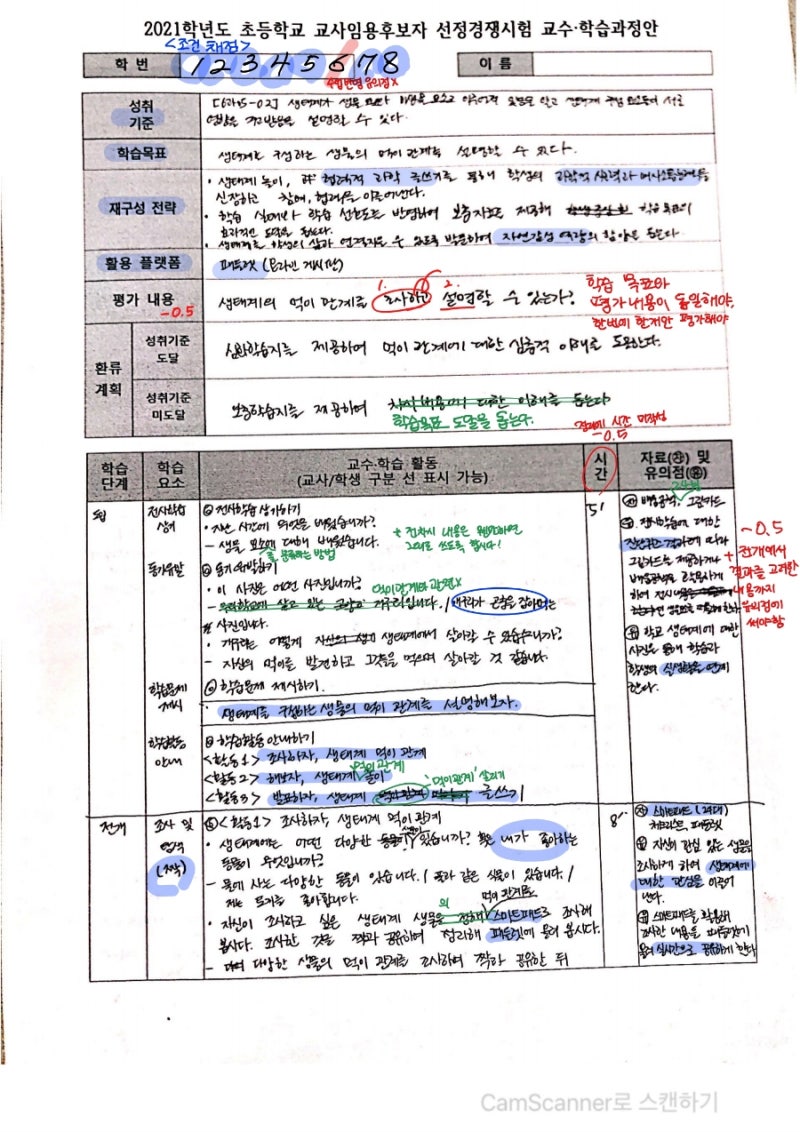 2021학년도 초등학교 교사임용후보자 선정경쟁시험 교수·학습과정안
<조건 채점>
학 번
12345678
이 름
수업반영 유의점 X
성취
기준
생태계가 생물 요소와 비생물 요소로 이루어져 있음을 알고 생태계 구성 요소들이 서로
영향을 주고받음을 설명할 수 있다.
학습목표
생태계를 구성하는 생물의 먹이 관계를 설명할 수 있다.
재구성 전략
• 생태계 놀이, 협력적 과학 글쓰기를 통해 학생의 과학적 사고력과 의사소통능력을
신장하고 참여, 협력을 이끌어낸다.
• 학습 실태와 학습 선호도를 반영하여 보충자료 제공해 학습 목표의
효과적인 도달을 돕는다.
• 생태계를 학생의 삶과 연결지을 수 있도록 발문하여 자연감성 역량의 함양을 돕는다.
활용 플랫폼
패들렛 (온라인 게시판)
평가 내용
-0.5
생태계의 먹이 관계를 조사하고 설명할 수 있는가?
1.
2.
학습 목표와
평가내용이 동일해야,
한번에 한개만 평가해야
환류
계획
성취기준
도달
심화학습지를 제공하여 먹이 관계에 대한 심층적 이해를 도모한다.
성취기준
미도달
보충학습지를 제공하여
학습목표 도달을 돕는다.
시간 미작성
-0.5
학습
단계
학습
요소
교수·학습 활동
(교사/학생 구분 선 표시 가능)
시
간
자료(㉧) 및
유의점(㉨)
도입
전시학습
상기
전시학습 상기하기
• 지난 시간에 무엇을 배웠습니까?
- 생물 요소에 대해 배웠습니다.
를 분류하는 방법
* 전차시 내용은 웬만하면
그대로 쓰도록 합시다!
5'
배움공책, 그림카드
전시학습에 대한
진단평가 결과에 따라
그림카드를 제공하거나
-0.5
+ 전개에서
결과를 고려한
내용까지
유의점에
써야함
동기유발
동기유발하기
• 이 사진은 어떤 사진입니까?
먹이관계와 관련X
개구리가 곤충을 잡아먹는
사진입니다.
• 개구리는 어떻게 생태계에서 살아갈 수 있습니까?
- 자신의 먹이를 발견하고 그것을 먹으며 살아갈 것 같습니다.
학교 생태계에 대한
사진을 통해 학습과
학생의 실생활을 연계
한다.
학습문제
제시
학습문제 제시하기.
• 생태계를 구성하는 생물의 먹이 관계를 설명해보자.
학습활동
안내
학습활동 안내하기
<활동1> 조사하자, 생태계 먹이 관계
<활동2> 해보자, 생태계 놀이
먹이관계
<활동3> 발표하자, 생태계 먹이관계 글쓰기
'먹이관계' 살리기
전개
조사 및
(2짝)
<활동1> 조사하자, 생태계 먹이 관계
• 생태계에는 어떤 다양한 있습니까? 내가 좋아하는
동물이 무엇입니까?
- 물에 사는 다양한 동물이 있습니다. / 꽃과 같은 식물이 있습니다. /
저는 토끼를 좋아합니다.
• 자신이 조사하고 싶은 생태계 생물의 먹이 관계를 스마트패드로 조사해
봅시다. 조사한 것을 짝과 공유하여 정리해 패들렛에 올려 봅시다.
- 다양한 생물의 먹이 관계를 조사하여 짝과 공유한 뒤
8'
스마트패드 (2대)
패들렛
자신이 관심 있는 생물을
조사하게 하여 생태계에
대한 관심을 이끌어
낸다.
스마트패드를 활용해
조사한 내용을 패들렛에
올려 실시간으로 공유하게 한다
CamScanner로 스캔하기